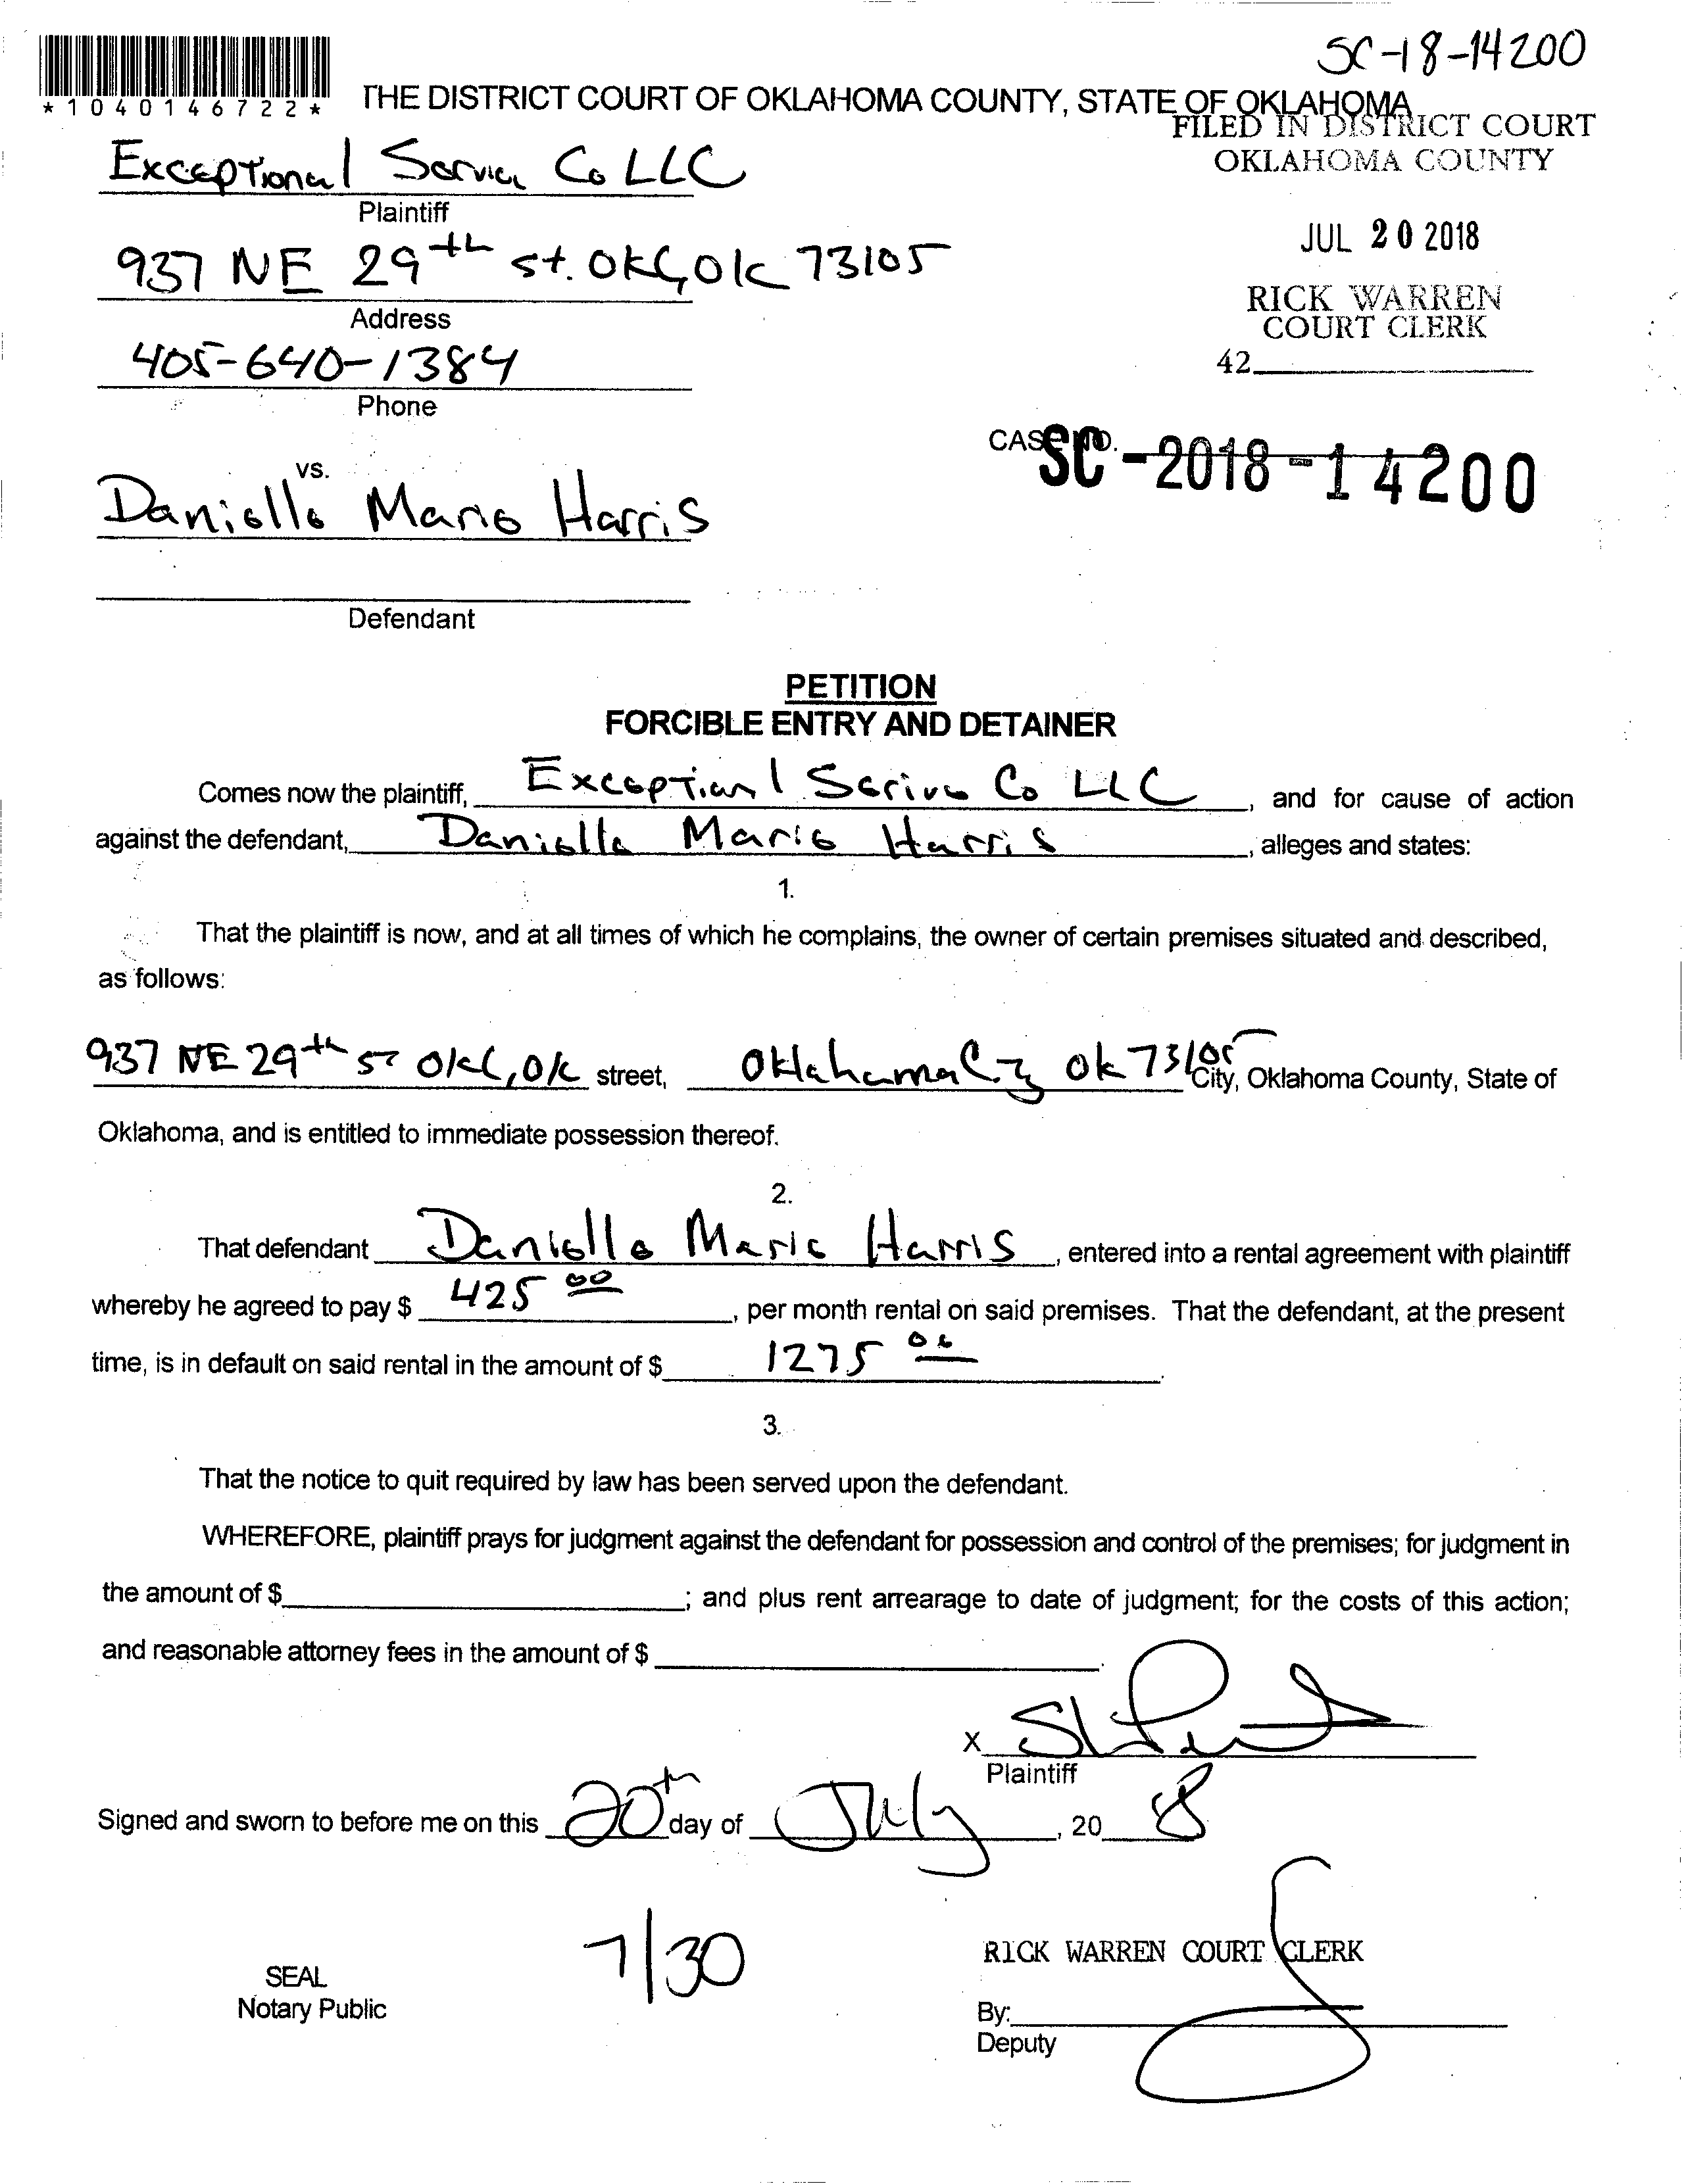 SC-18-14200
*1040146722*
THE DISTRICT COURT OF OKLAHOMA COUNTY, STATE OF OKLAHOMA
FILED IN DISTRICT COURT
OKLAHOMA COUNTY
Exceptional Service Co LLC
Plaintiff
JUL 20 2018
937 NE 29th st. OKC, OK 73105
Address
RICK WARREN
COURT CLERK
405-640-1384
42
Phone
CASE NO.
SC-2018-14200
vs.
Danielle Marie Harris
Defendant
PETITION
FORCIBLE ENTRY AND DETAINER
Comes now the plaintiff, Exceptional Serivce Co LLC, and for cause of action
against the defendant, Danielle Marie Harris, alleges and states:
1.
That the plaintiff is now, and at all times of which he complains, the owner of certain premises situated and described,
as follows:
937 NE 29th ST OKC, OK street, Oklahoma City OK 73105 City, Oklahoma County, State of
Oklahoma, and is entitled to immediate possession thereof.
2.
That defendant Danielle Marie Harris, entered into a rental agreement with plaintiff
whereby he agreed to pay $ 425 00, per month rental on said premises. That the defendant, at the present
time, is in default on said rental in the amount of $ 1275 00.
3.
That the notice to quit required by law has been served upon the defendant.
WHEREFORE, plaintiff prays for judgment against the defendant for possession and control of the premises; for judgment in
the amount of $ ; and plus rent arrearage to date of judgment; for the costs of this action;
and reasonable attorney fees in the amount of $ .
X
Plaintiff
Signed and sworn to before me on this 20th day of July, 20 18
7/30
RICK WARREN COURT CLERK
SEAL
Notary Public
By:
Deputy